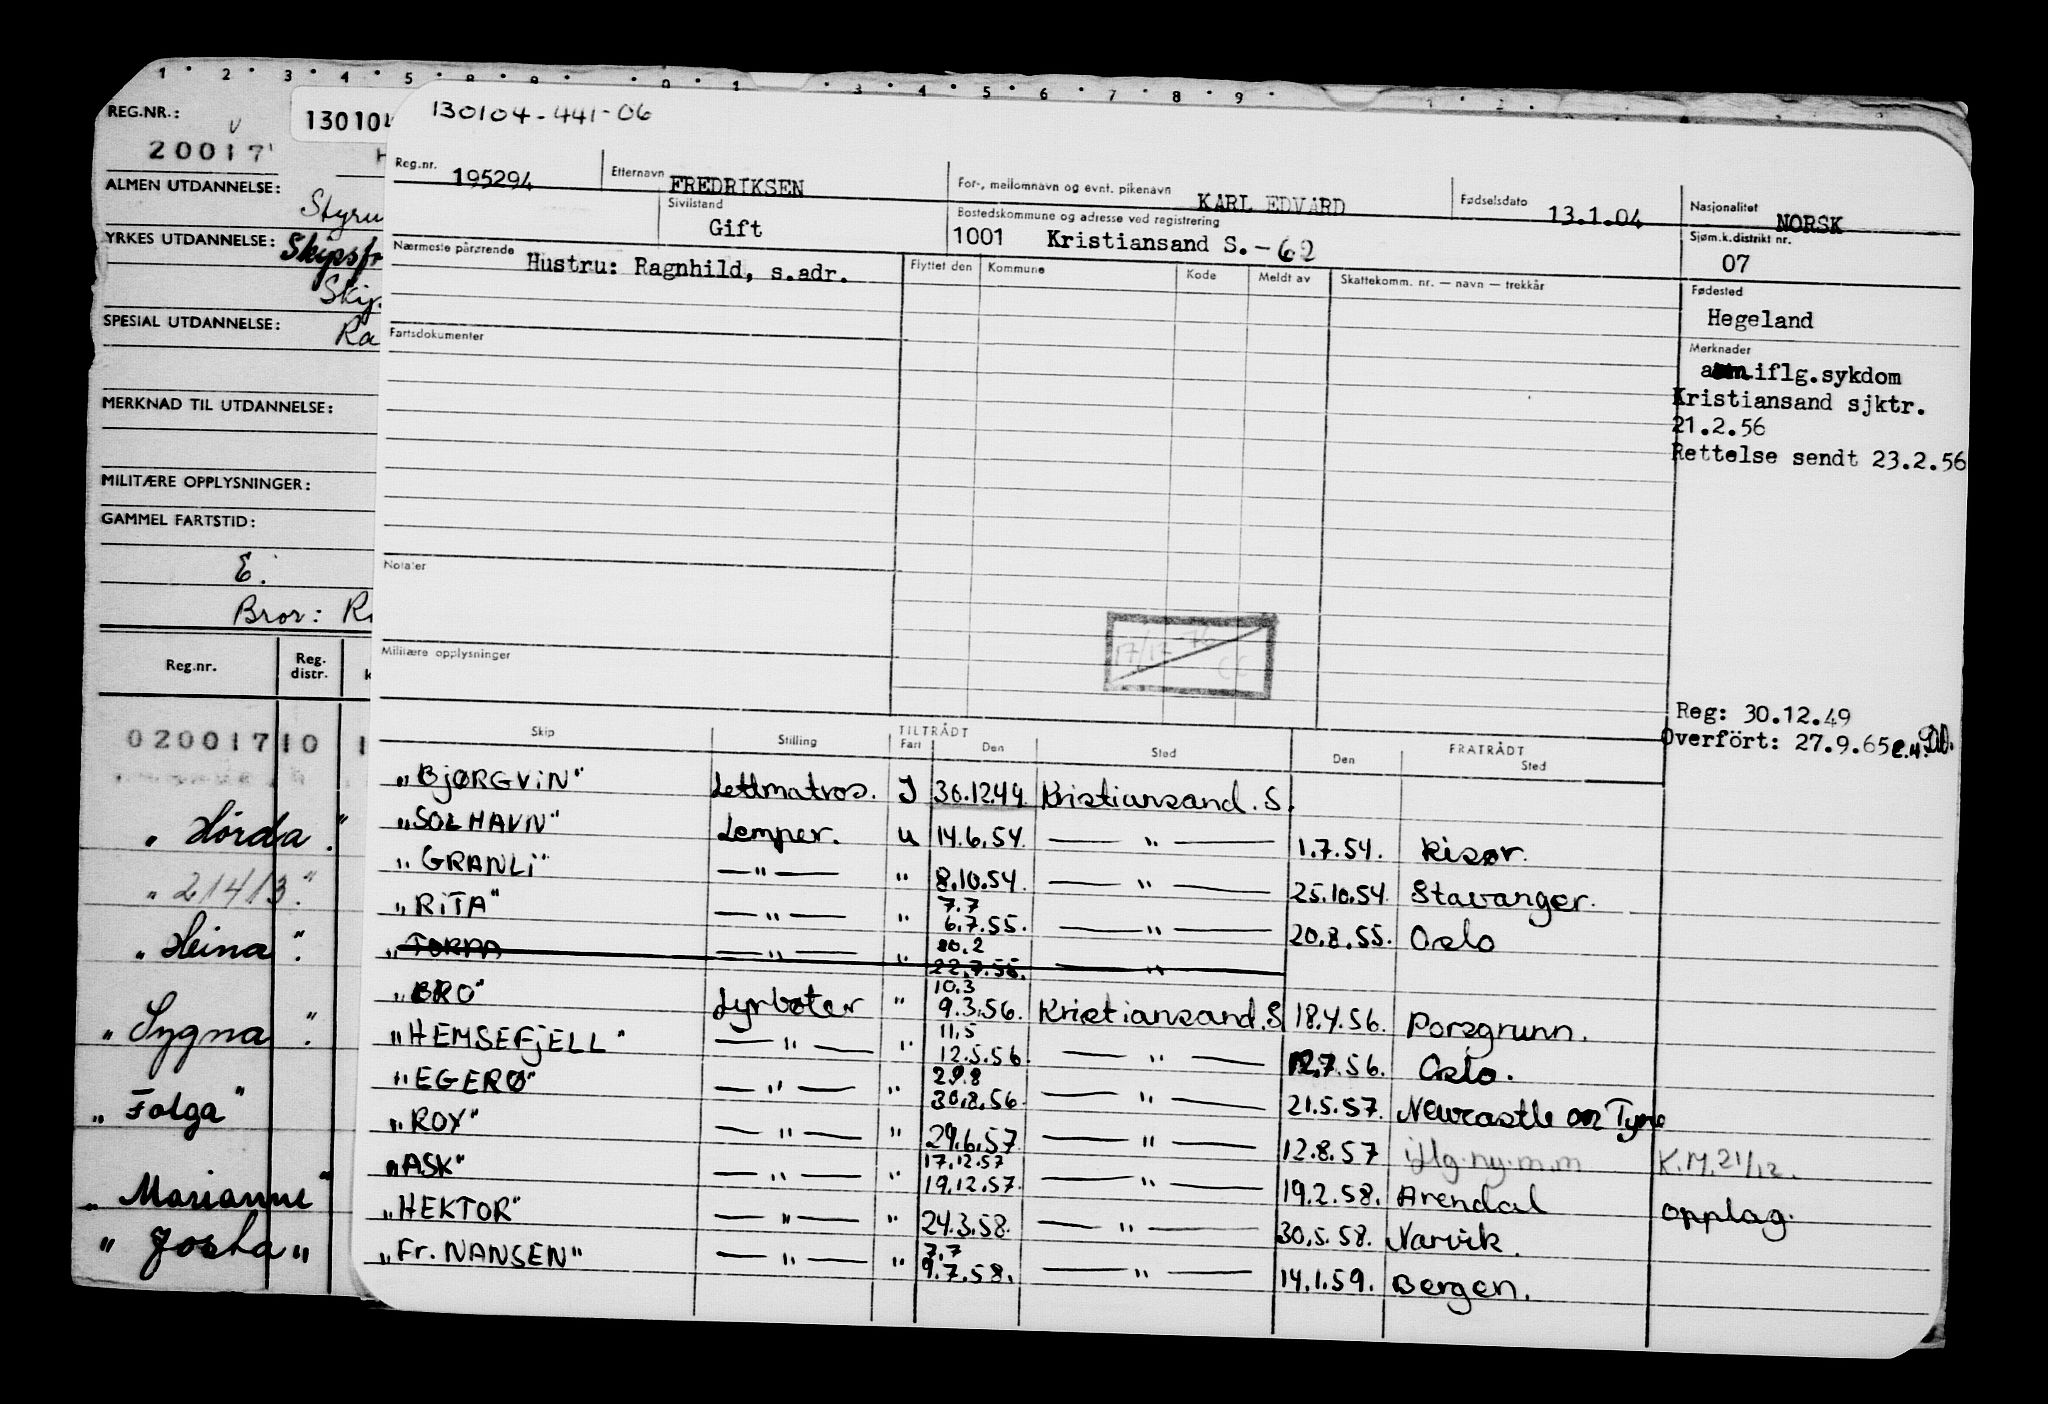 1 · 2 · 3 · 4 · 5
3 · 4 · 5 · 6 · 7 · 8 · 9 ·
REG.NR.:
20017
ALMEN UTDANNELSE:
YRKES UTDANNELSE:
SPESIAL UTDANNELSE:
MERKNAD TIL UTDANNELSE:
MILITÆRE OPPLYSNINGER:
GAMMEL FARTSTID:
E.
Bror:
Reg.nr. Reg. distr.
02001710 1
"Hörda".
"214/3."
"Heina".
"Sygna".
"Folga"
"Marianne"
"Josta"
130104-441-06
Reg.nr. 195294 Etternavn FREDRIKSEN For-, mellomnavn og evnt. pikenavn KARL EDVARD Fødselsdato 13.1.04 Nasjonalitet NORSK
Sivilstand Gift Bostedskommune og adresse ved registrering 1001 Kristiansand S.-62 Sjøm.k.distrikt nr. 07
Nærmeste pårørende Hustru: Ragnhild, s.adr. Flyttet den Kommune Kode Meldt av Skattekomm. nr. — navn — trekkår
Fødested
Hegeland
Fartsdokumenter
Merknader
iflg.sykdom
Kristiansand sjktr.
21.2.56
Rettelse sendt 23.2.56
Notater
Militære opplysninger
Reg: 30.12.49
Overfört: 27.9.65
Skip Stilling TILTRÅDT Fart Den Sted FRATRÅDT Den Sted
"BJØRGVIN" Lettmatros. I 30.12.44. Kristiansand. S.
"SOLHAVN" Lemper. u 14.6.54. — " — 1.7.54. Risør.
"GRANLI" — " — " 8.10.54. — " — 25.10.54. Stavanger.
"RITA" — " — " 7.7 6.7.55. — " — 20.8.55. Oslo
"TORPA — " — " 22.7.55. — " —
"BRO" Fyrbøter " 10.3 9.3.56. Kristiansand.S 18.4.56. Porsgrunn.
"HEMSEFJELL" — " — " 11.5 12.5.56. — " — 12.7.56. Oslo.
"EGERØ" — " — " 29.8 30.8.56. — " — 21.5.57. Newcastle on Tyne
"ROY" — " — " 29.6.57. — " — 12.8.57 iflg.ny.m.m K.M.21/12.
"ASK" — " — " 17.12.57 19.12.57. — " — 19.2.58. Arendal opplag.
"HEKTOR" — " — " 24.3.58. — " — 30.5.58. Narvik.
"Fr. NANSEN" — " — " 7.7 9.7.58. — " — 14.1.59. Bergen.